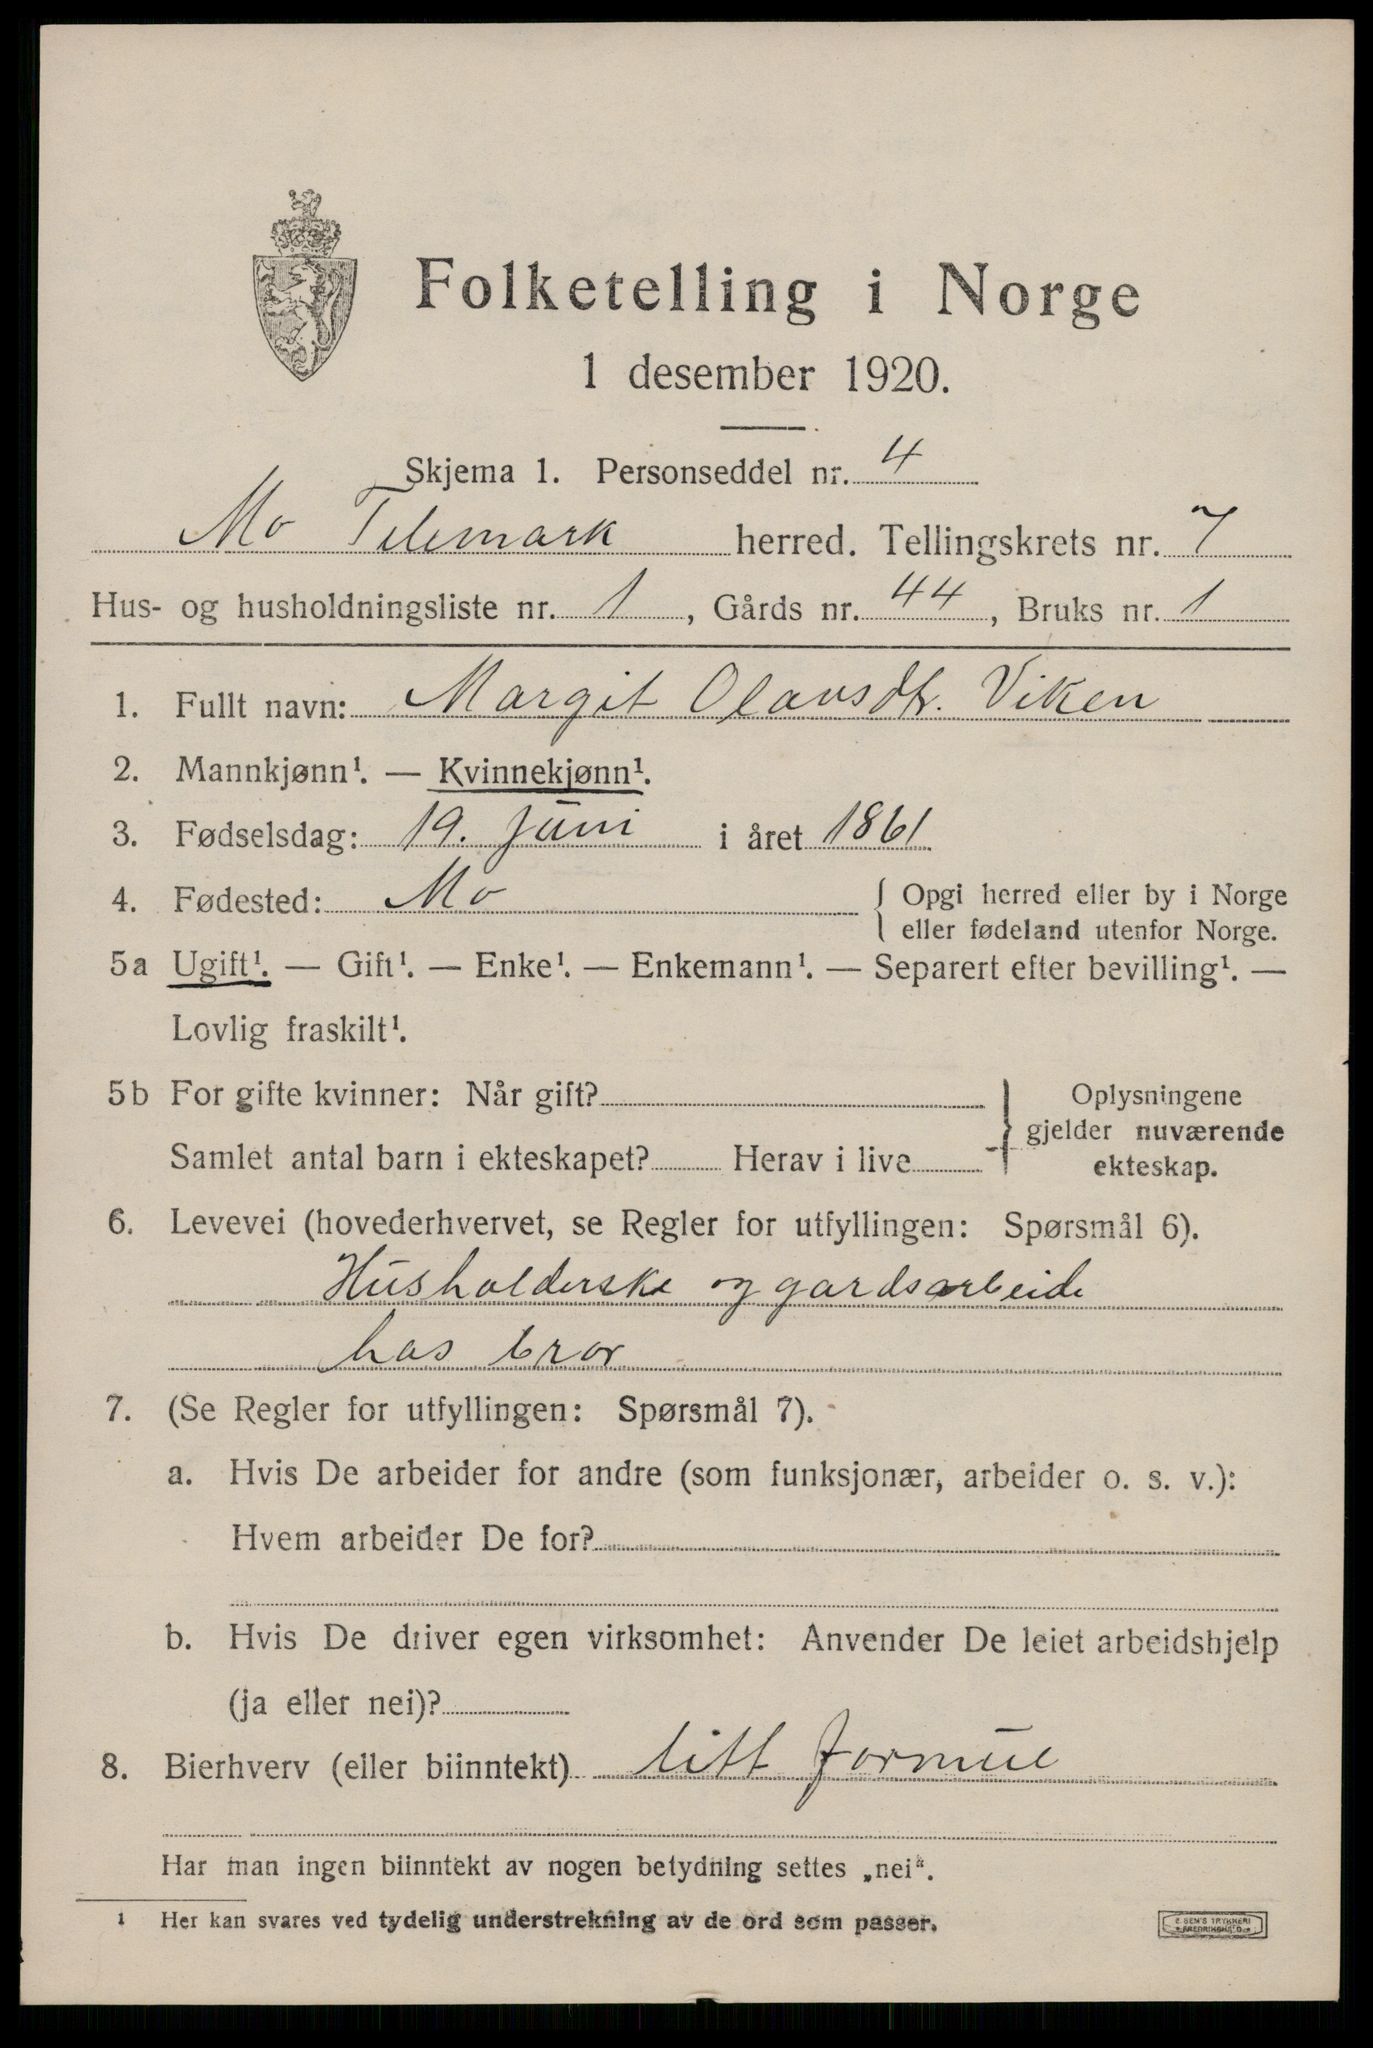 Folketelling i Norge
1 desember 1920.
Skjema 1. Personseddel nr. 4
Mo Telemark herred. Tellingskrets nr. 7
Hus- og husholdningsliste nr. 1, Gårds nr. 44, Bruks nr. 1
1. Fullt navn: Margit Olavsdtr. Viken
2. Mannkjønn¹. — Kvinnekjønn¹.
3. Fødselsdag: 19. Juni i året 1861
4. Fødested: Mo { Opgi herred eller by i Norge
eller fødeland utenfor Norge.
5a Ugift¹. — Gift¹. — Enke¹. — Enkemann¹. — Separert efter bevilling¹. —
Lovlig fraskilt¹.
5b For gifte kvinner: Når gift? } Oplysningene
gjelder nuværende
Samlet antal barn i ekteskapet? Herav i live
ekteskap.
6. Levevei (hovederhvervet, se Regler for utfyllingen: Spørsmål 6).
Husholderske og gardsarbeide
hos bror
7. (Se Regler for utfyllingen: Spørsmål 7).
a. Hvis De arbeider for andre (som funksjonær, arbeider o. s. v.):
Hvem arbeider De for?
b. Hvis De driver egen virksomhet: Anvender De leiet arbeidshjelp
(ja eller nei)?
8. Bierhverv (eller biinntekt) litt formue
Har man ingen biinntekt av nogen betydning settes „nei“.
¹ Her kan svares ved tydelig understrekning av de ord som passer.
E. SEM'S TRYKKERI
FREDRIKSHALD